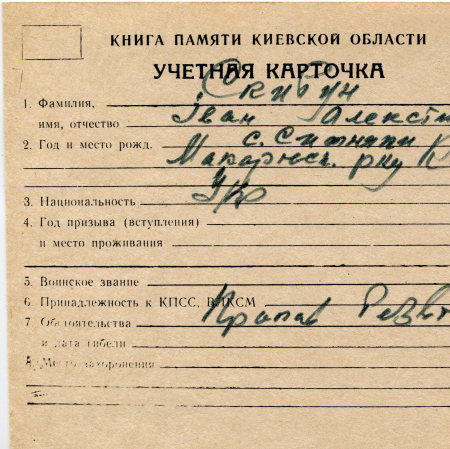 КНИГА ПАМЯТИ КИЕВСКОЙ ОБЛАСТИ
УЧЕТНАЯ КАРТОЧКА
1. Фамилия, Скибун
имя, отчество Іван Алексті
2. Год и место рожд. с. Ситняки
Макарівсь. р-ну К
3. Национальность Укр
4. Год призыва (вступления)
и место проживания
5. Воинское звание
6 Принадлежность к КПСС, ВЛКСМ
7 Обстоятельства Пропав
и дата гибели
8. Место захоронения